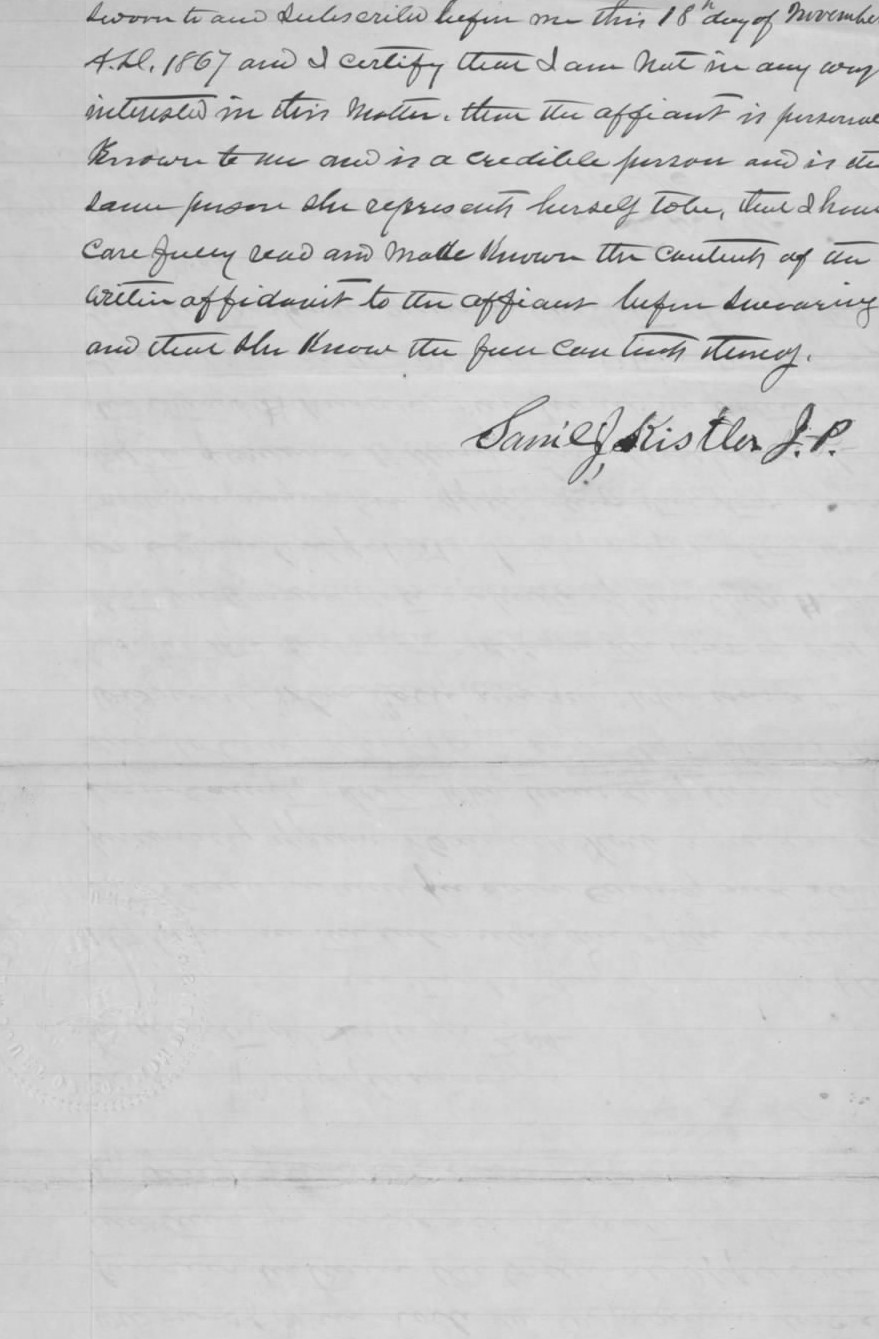 Sworn to and Subscribed before me this 18th day of November
A.D. 1867 and I certify that I am Not in any way
interested in this Matter. that the affiant is personal
Known to me and is a credible person and is the
same person she represents herself to be, that I have
Carefully read and Made Known the Contents of the
within affidavit to the affiant before Swearing
and that She Know the full contents thereof.
Sam'l J Kistler J.P.